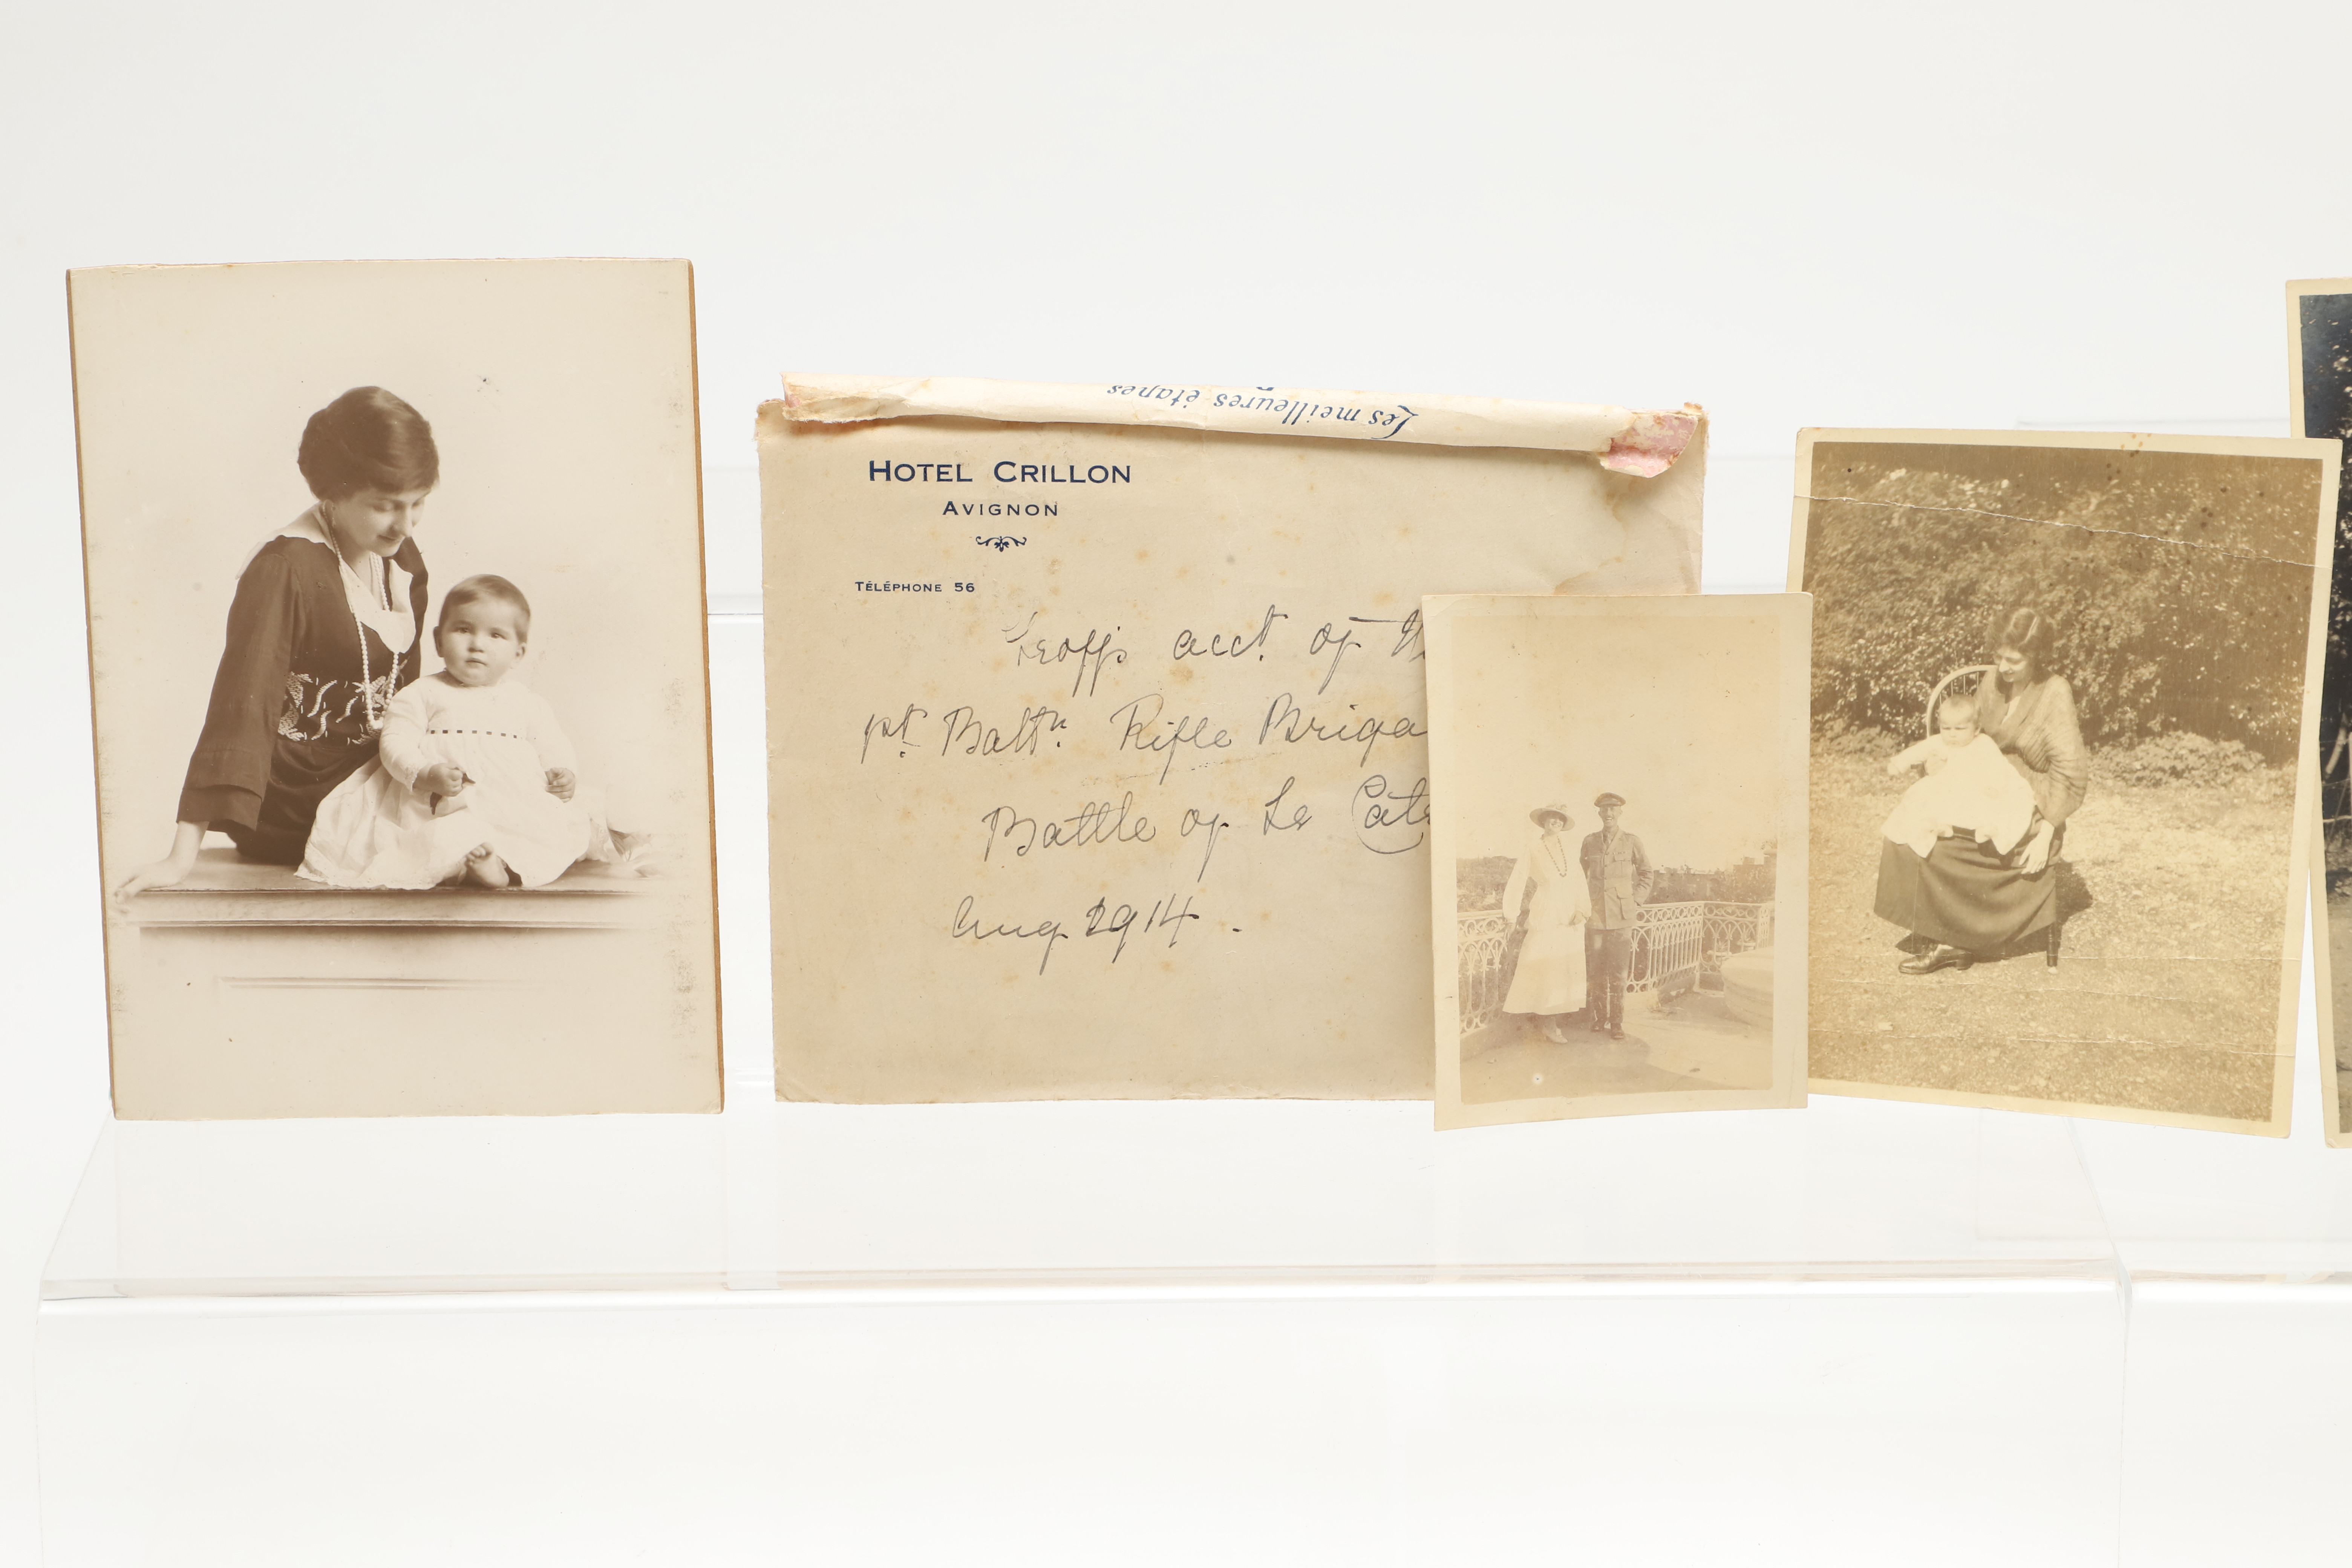 Les meilleures étapes
HOTEL CRILLON
AVIGNON
TÉLÉPHONE 56
Geoff's acct. of
1st Battn. Rifle Briga
Battle of Le Cate
Aug 1914.